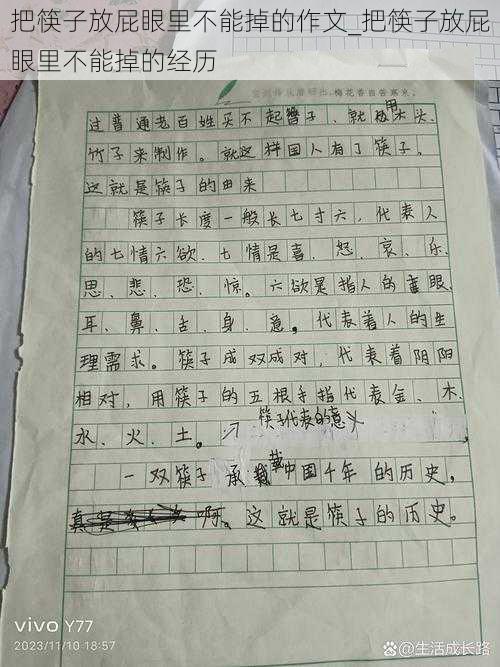 把筷子放屁眼里不能掉的作文_把筷子放屁
眼里不能掉的经历
梅花香自苦寒来
过普通老百姓买不起簪子、就极用木头、
竹子来制作。就这样国人有了筷子。
这就是筷子的由来
筷子长度一般长七寸六,代表人
的七情六欲.七情是喜、怒、哀、乐、
思、悲、恐、惊。六欲是指人的眼、
耳、鼻、舌、身、意。代表着人的生
理需求。筷子成双成对,代表着阴阳
相对,用筷子的五根手指代表金、木、
水、火、土。
筷子代表的意义
一双筷子承载中国千年的历史,
啊。这就是筷子的历史。
vivo Y77
2023/11/10 18:57
@生活成长路